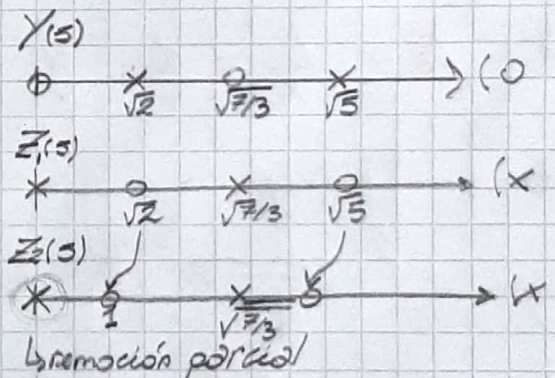 Y(s)
√2 √7/3 √5 (O
Z₁(s)
√2 √7/3 √5 (X
Z₂(s)
1 √7/3 (X
↳ remoción parcial